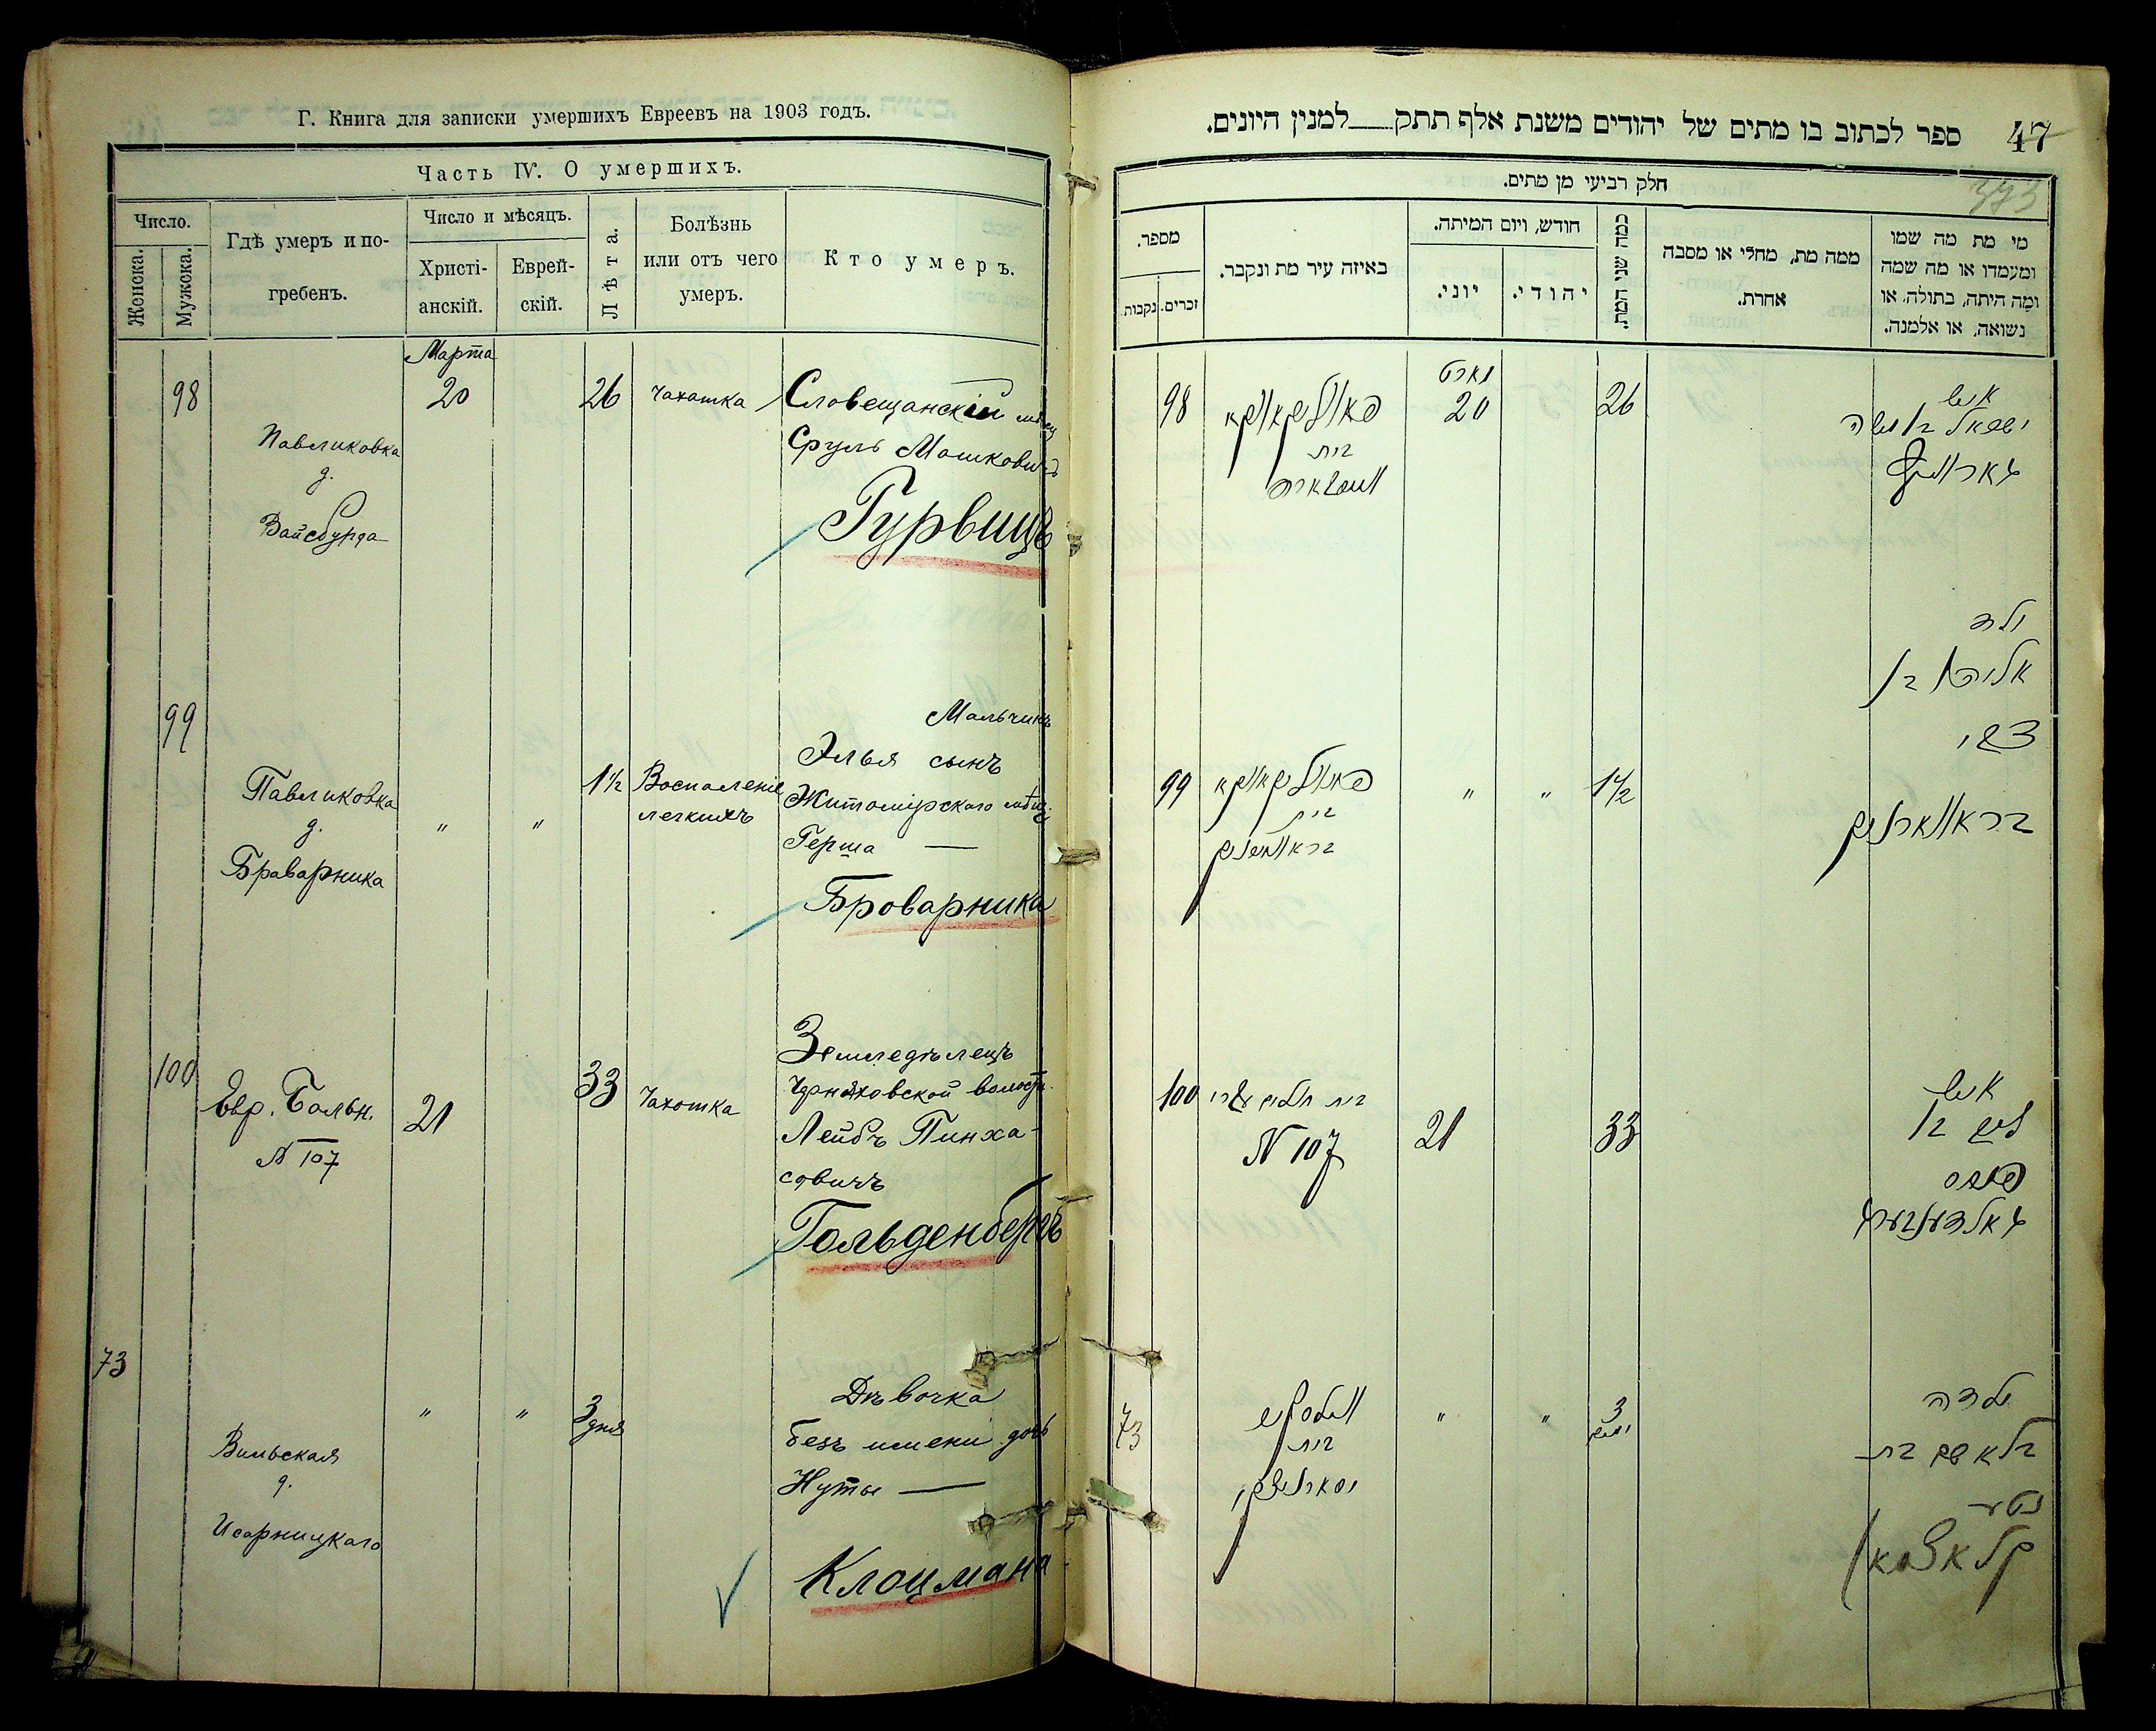 Г. Книга для записки умершихъ Евреевъ на 1903 годъ.
Часть IV. О умершихъ.
Число.
Женска.
Мужска.
Гдѣ умеръ и по-
гребенъ.
Число и мѣсяцъ.
Христі-
анскій.
Еврей-
скій.
Лѣта.
Болѣзнь
или отъ чего
умеръ.
Кто умеръ.
Марта
98
20
26
Чахотка
Словещанскій
Павликовка
д.
Вайсбурда
Сруль Мошковичъ
Гурвицъ
99
Мальчикъ
Элья сынъ
Павликовка
д.
Браварника
"
"
1½
Воспаленіе
легкихъ
Житомірскаго мѣщ.
Герша —
Броварника
100
Евр. Больн.
N 107
21
33
Чахотка
Земледѣлецъ
Черняховской волости
Лейбъ Пинха-
совичъ
Гольденбергъ
73
Вильская
д.
Исарницкаго
"
"
3
дня
Дѣвочка
безъ имени дочь
Нуты —
Клоцмана
47
ספר לכתוב בו מתים של יהודים משנת אלף תתק למנין היונים.
373
חלק רביעי מן מתים.
מספר.
זכרים.
נקבות.
באיזה עיר מת ונקבר.
חודש, ויום המיתה.
יוני.
יהודי.
כמה שני המת.
ממה מת, מחלי או מסבה
אחרת.
מי מת מה שמו
ומעמדו או מה שמה
ומה היתה, בתולה, או
נשואה, או אלמנה.
98
פאוולקאווקא
בית
מארט
20
26
איש
ישראל בן משה
99
פאוולקאווקא
בית
בראווארניק
"
"
1½
ילד
אליהו בן
צבי
בראווארניק
100
N 107
21
33
איש
ליב בן
פנחס
גאלדענבערג
73
ווילסקי
בית
"
"
3
ימים
ילדה
בלא שם בת
נטע
קלאצמאן